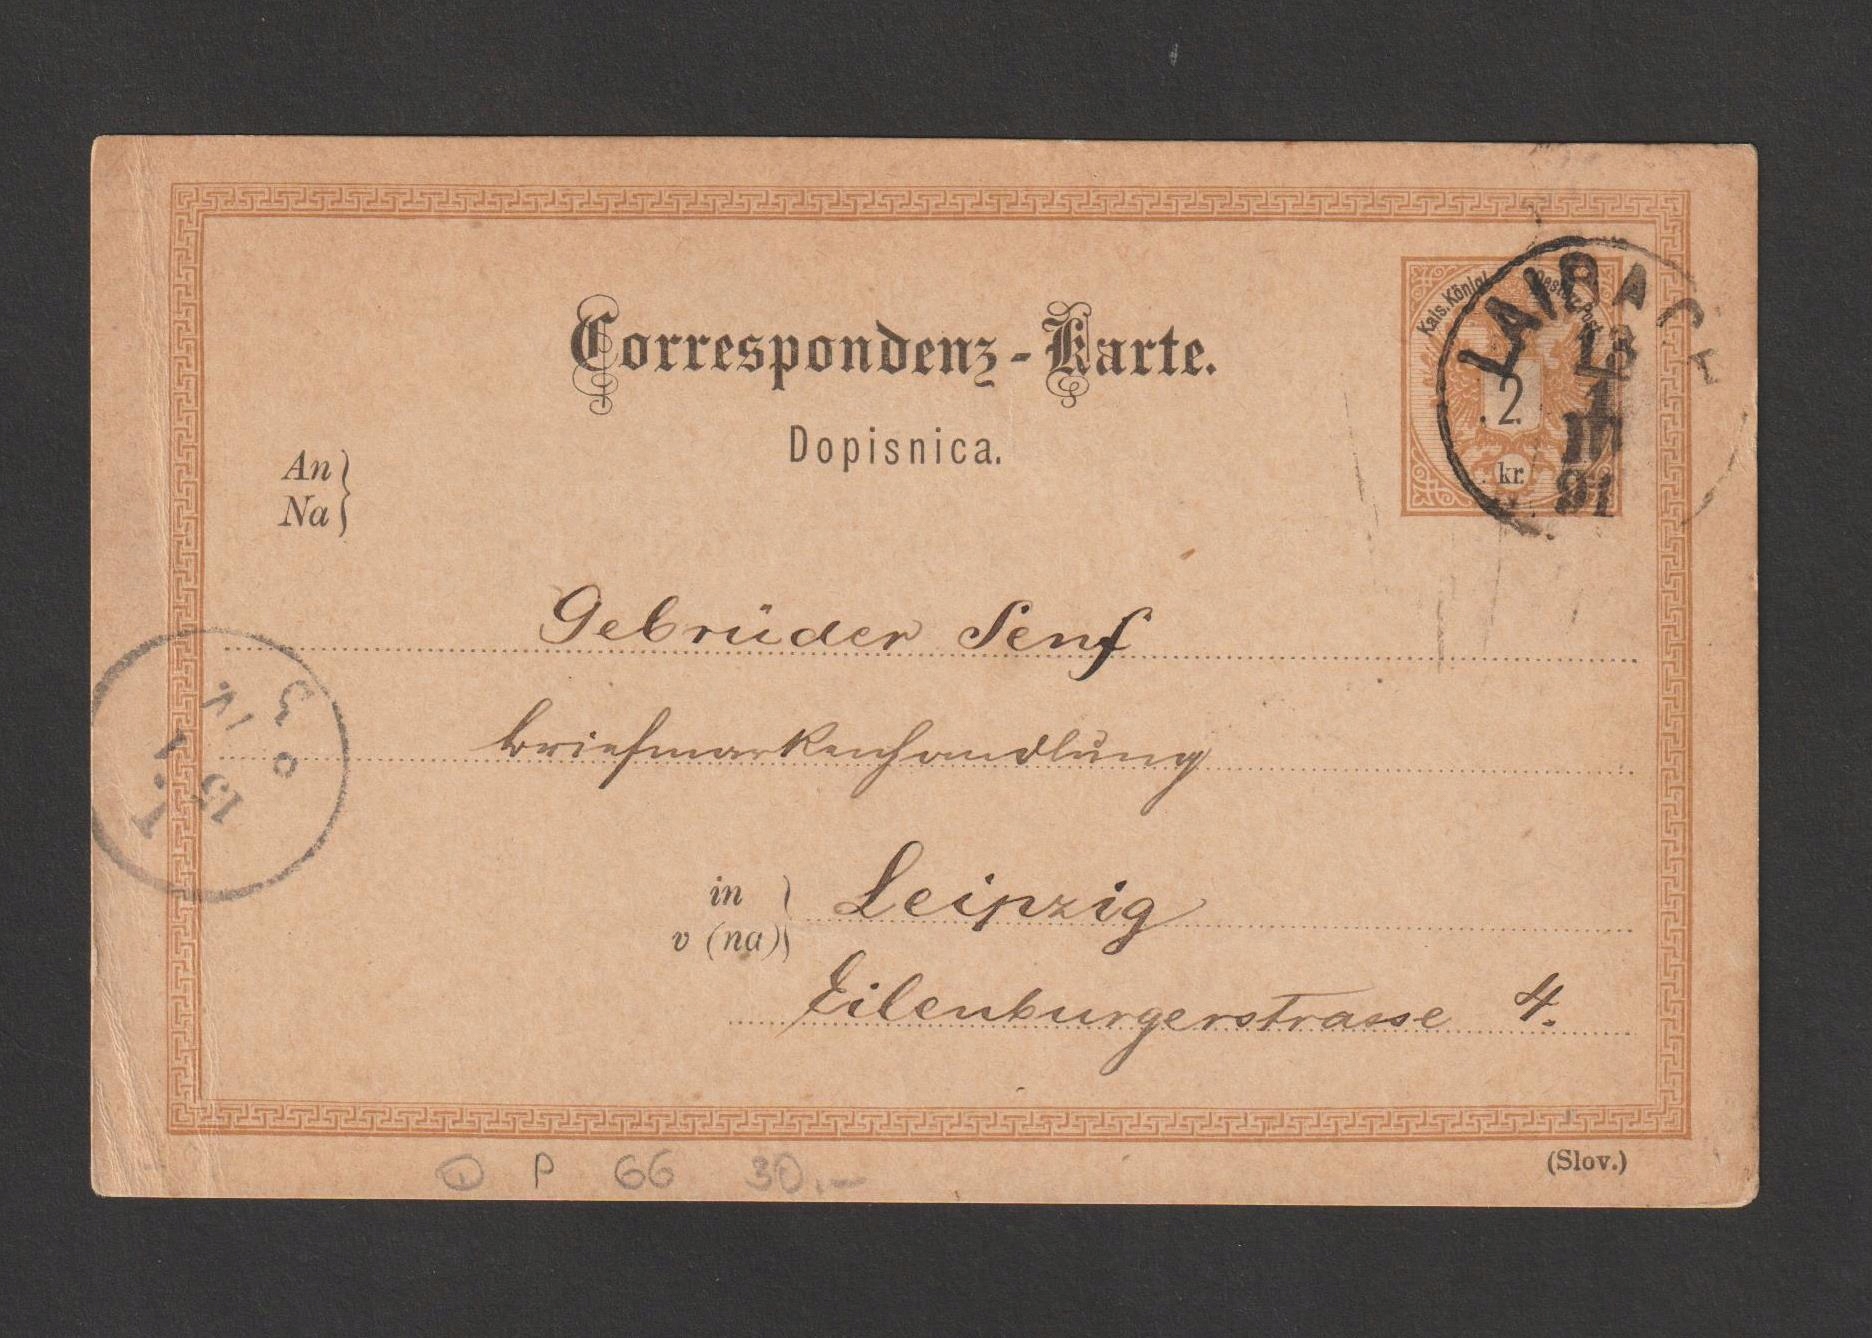 Correspondenz-Karte.
Dopisnica.
Kais. Königl. Oesterr. Post
2
kr.
LAIBACH
13
1
91
An
Na
Gebrüder Senf
Briefmarkenhandlung
in
v (na)
Leipzig
Eilenburgerstrasse 4.
(Slov.)
P 66 30.-